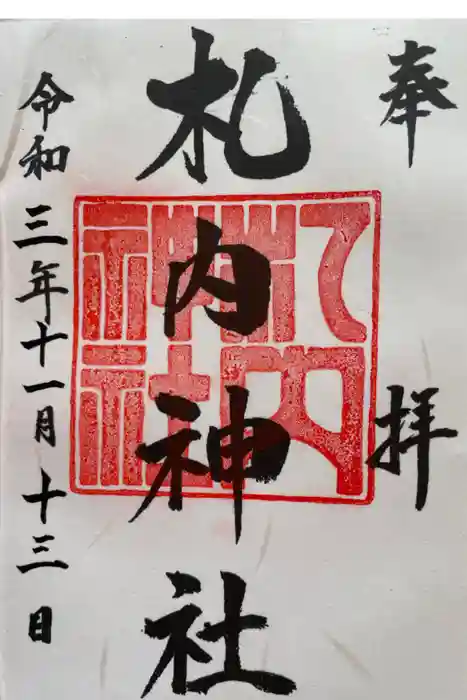 奉拝
札内神社
令和三年十一月十三日
札内神社